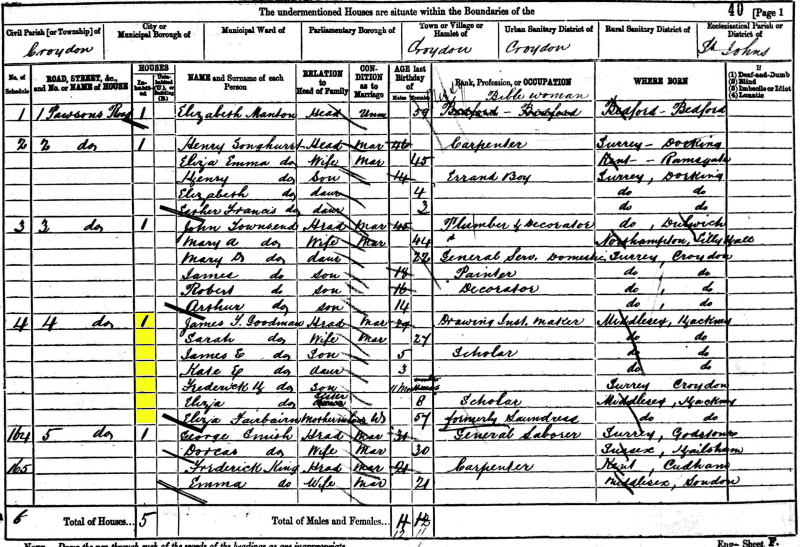 The undermentioned Houses are situate within the Boundaries of the 40 [Page 1
Civil Parish [or Township] of City or Municipal Borough of Municipal Ward of Parliamentary Borough of Town or Village or Hamlet of Urban Sanitary District of Rural Sanitary District of Ecclesiastical Parish or District of
Croydon Croydon Croydon St Johns
No. of Schedule ROAD, STREET, &c., and No. or NAME of HOUSE HOUSES Inhabited Uninhabited (U.), or Building (B.) NAME and Surname of each Person RELATION to Head of Family CONDITION as to Marriage AGE last Birthday of Males Females Rank, Profession, or OCCUPATION WHERE BORN If (1) Deaf-and-Dumb (2) Blind (3) Imbecile or Idiot (4) Lunatic
Bible woman
1 1 Pawsons 1 Elizabeth Manton Head Unm 39 Bedford - Bedford Bedford - Bedford
2 2 do 1 Henry Songhurst Head Mar 46 Carpenter Surrey - Dorking
Eliza Emma do Wife Mar 45 Kent - Ramsgate
Henry do Son 14 Errand Boy Surrey, Dorking
Elizabeth do daur 4 do do
Esther Francis do daur 2 do do
3 3 do 1 John Townsend Head Mar 45 Plumber & Decorator do, Dulwich
Mary A do Wife Mar 44 Northampton,
Mary do daur 22 General Serv. Domestic Surrey, Croydon
James do son 19 Painter do do
Robert do son 16 Decorator do do
Arthur do son 14 do do
4 4 do 1 James T. Goodman Head Mar 29 Drawing Inst. maker Middlesex, Hackney
Sarah do Wife Mar 27 do do
James E do Son 5 Scholar do do
Kate E do daur 3 do do
Frederick do Son 11 Mo Surrey Croydon
Eliza do Sister 8 Scholar Middlesex, Hackney
Eliza Fairbairn Motherinlaw W 57 formerly Laundress do do
164 5 do 1 George Smith Head Mar 31 General Laborer Surrey, Godstone
Dorcas do Wife Mar 30 Sussex, Hailsham
165 Frederick King Head Mar 21 Carpenter Kent, Cudham
Emma do Wife Mar 21 Middlesex, London
6 Total of Houses... 5 Total of Males and Females...
Eng- Sheet F.